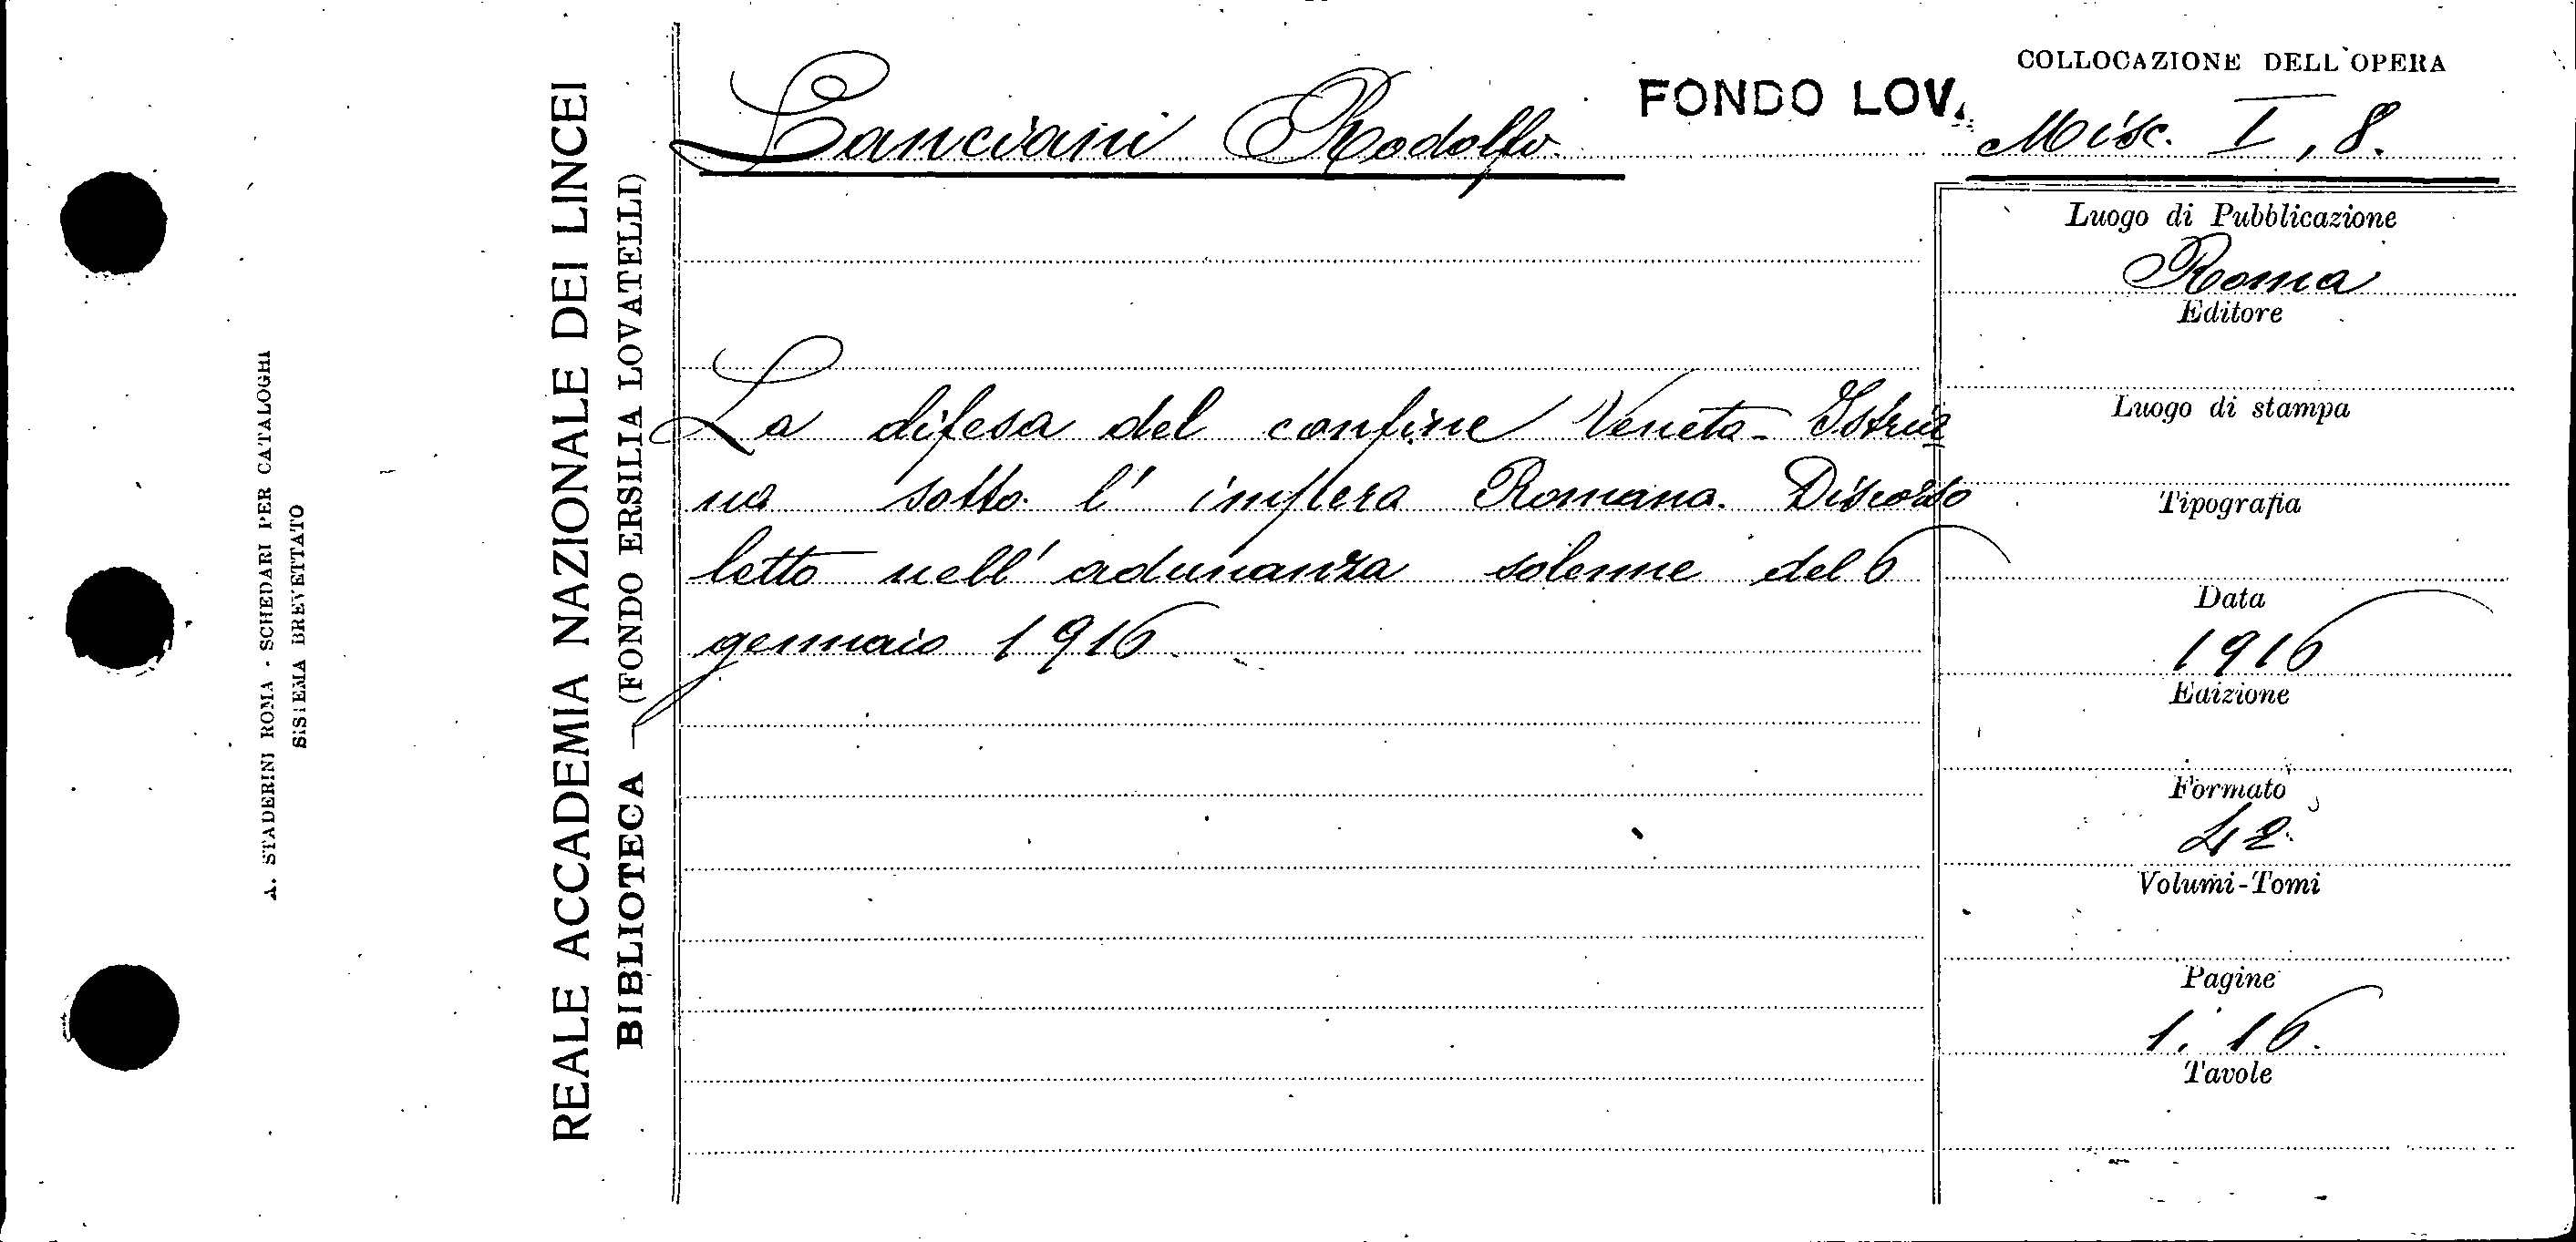 COLLOCAZIONE DELL'OPERA
Lanciani Rodolfo.
FONDO LOV.
Misc. I, 8.
La difesa del confine Veneto-Istria
no sotto l'impero Romano. Discorso
letto nell'adunanza solenne del 6
gennaio 1916.
Luogo di Pubblicazione
Roma
Editore
Luogo di stampa
Tipografia
Data
1916
Edizione
Formato
Volumi-Tomi
Pagine
1. 16.
Tavole
REALE ACCADEMIA NAZIONALE DEI LINCEI
BIBLIOTECA (FONDO ERSILIA LOVATELLI)
A. STADERINI ROMA - SCHEDARI PER CATALOGHI
SISTEMA BREVETTATO